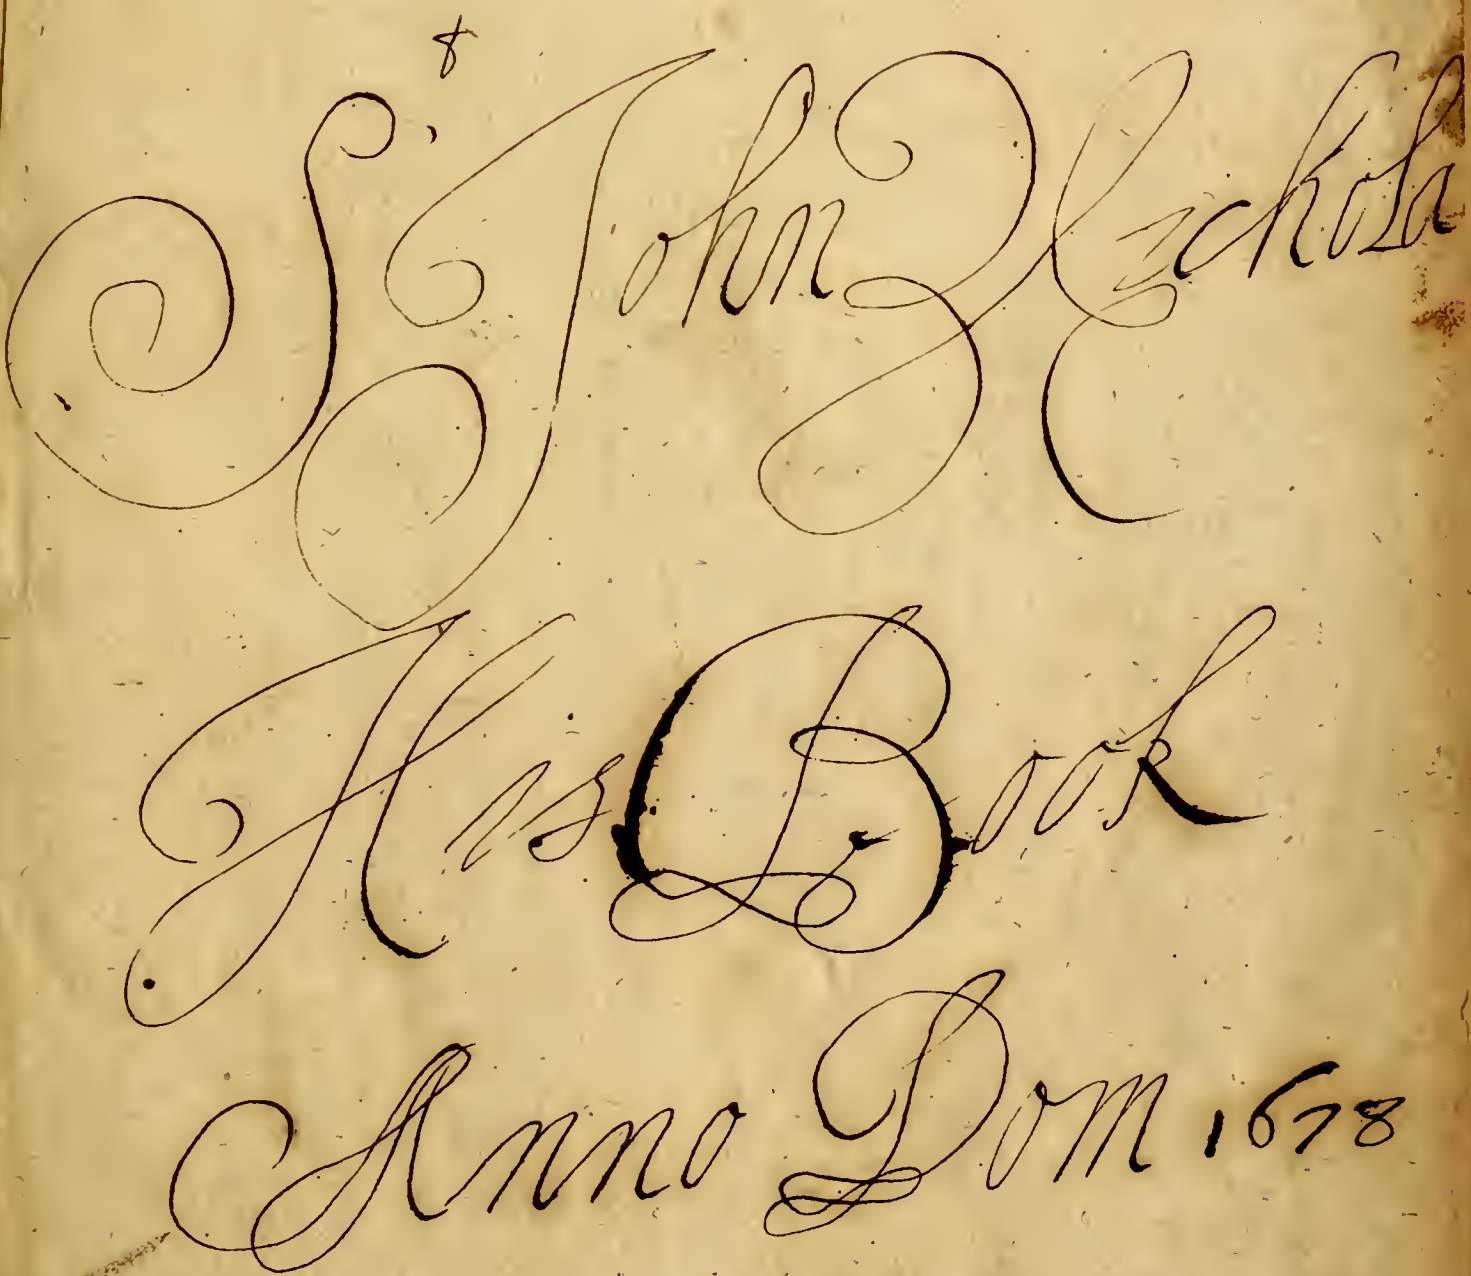 Sr John Nickols
His Book
Anno Dom 1678